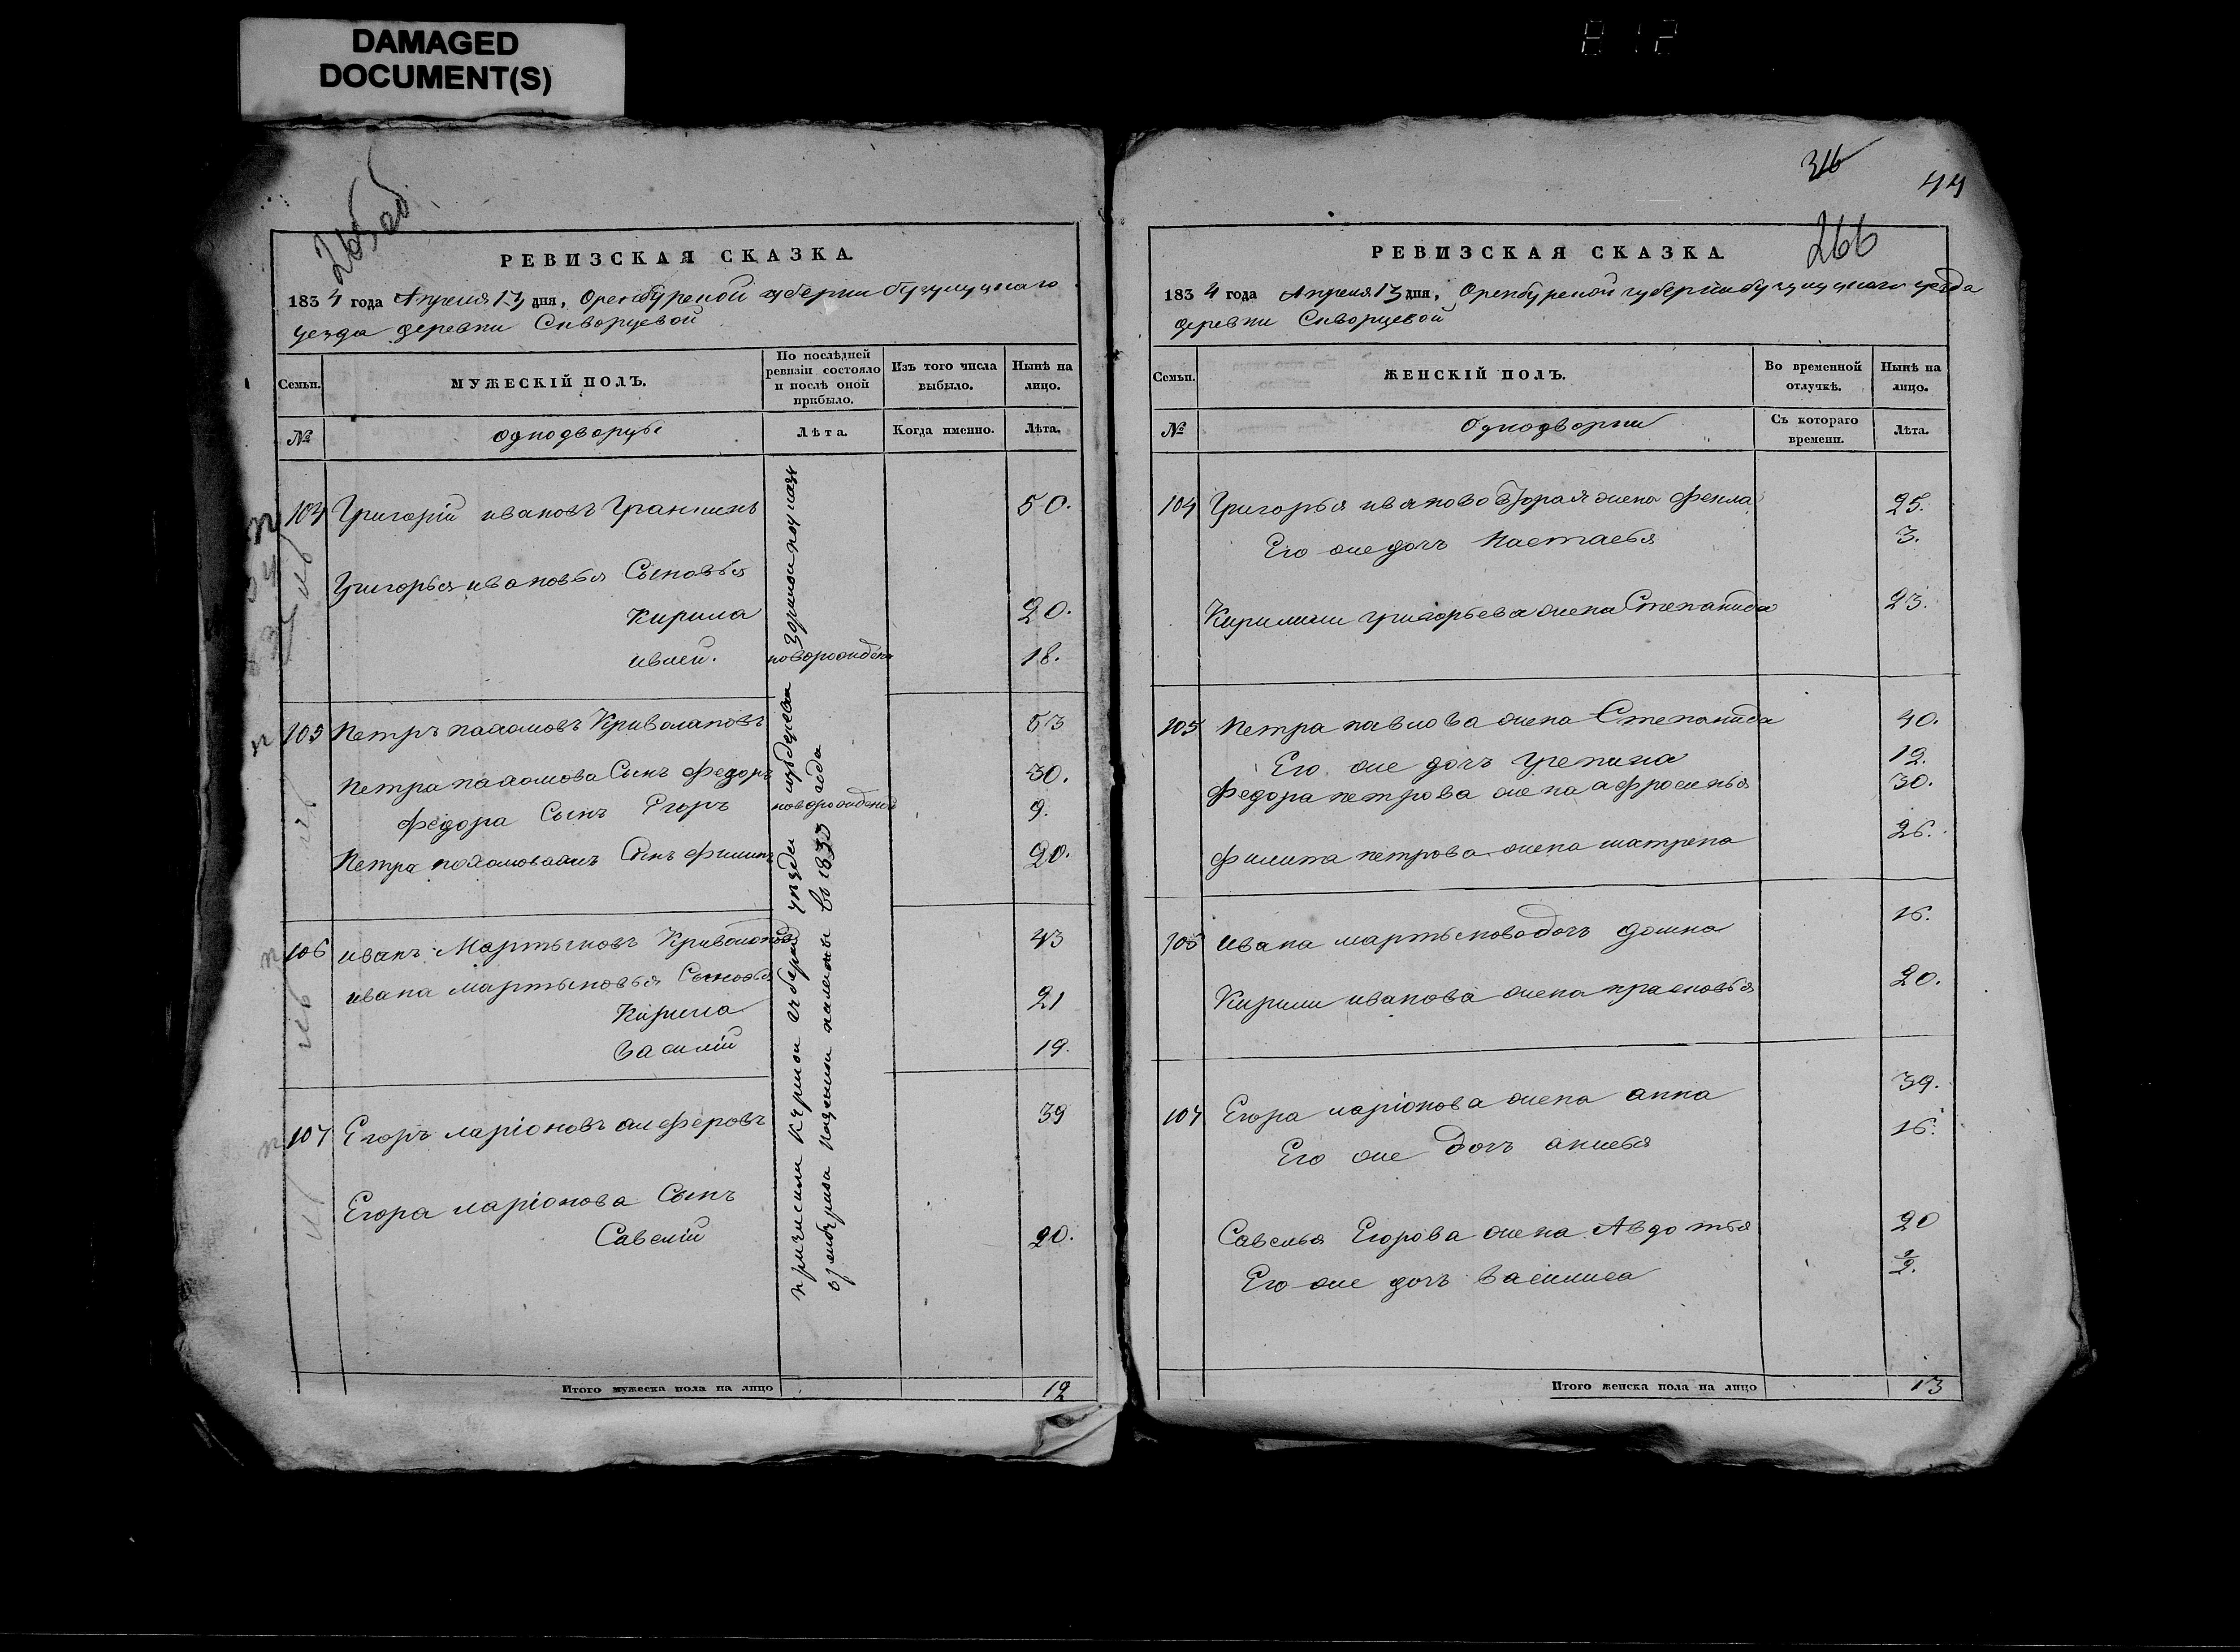 DAMAGED
DOCUMENT(S)
812
265об
РЕВИЗСКАЯ СКАЗКА.
1834 года Апреля 13 дня, Оренбурской губернии бугулуцкаго
уезда деревни Скворцевой
Семьи.
МУЖЕСКІЙ ПОЛЪ.
По послѣдней ревизіи состояло и послѣ оной прибыло.
Изъ того числа выбыло.
Нынѣ на лицо.
№
однодворцы
Лѣта.
Когда именно.
Лѣта.
104 Григорій ивановъ 50.
Григорья ивановья Сыновья
Кирила 20.
новорожденъ 18.
105 Петръ пахомовъ Криволаповъ 53
Петра пахомова Сынъ Федоръ 30.
Федора Сынъ Егоръ новорожденъ 9.
Петра Сынъ Филипъ 20.
106 иванъ Мартыновъ Криволаповъ 43
ивана мартыновья Сыновья
Кирила 21
Василій 19.
107 Егоръ ларіоновъ алферовъ 39
Егора ларіонова Сынъ
Савелій 20.
причислены уезда
казенной палаты въ 1833 года
Итого мужеска пола на лицо 12
316
44
266
РЕВИЗСКАЯ СКАЗКА
1834 года Апреля 13 дня, Оренбурской губернии бугулуцкаго уезда
деревни Скворцевой
Семьи.
ЖЕНСКІЙ ПОЛЪ.
Во временной отлучкѣ.
Нынѣ на лицо.
№
Однодворки
Съ котораго времени.
Лѣта.
104 Григорья иваново вторая жена Фекла 25.
Его же дочь Настасья 3.
Кирилы григорьева жена Степанида 23.
105 Петра павлова жена Степанида 40.
Его же дочь 12.
Федора петрова жена афросинья 30.
Филипа петрова жена матрена 26.
105 Ивана мартыново дочь домна 16.
Кирилы иванова жена прасковья 20.
107 Егора ларіонова жена анна 39.
Его же дочь 16.
Савелья Егорова жена Авдотья 20
Его же дочь Василиса
Итого женска пола на лицо 13